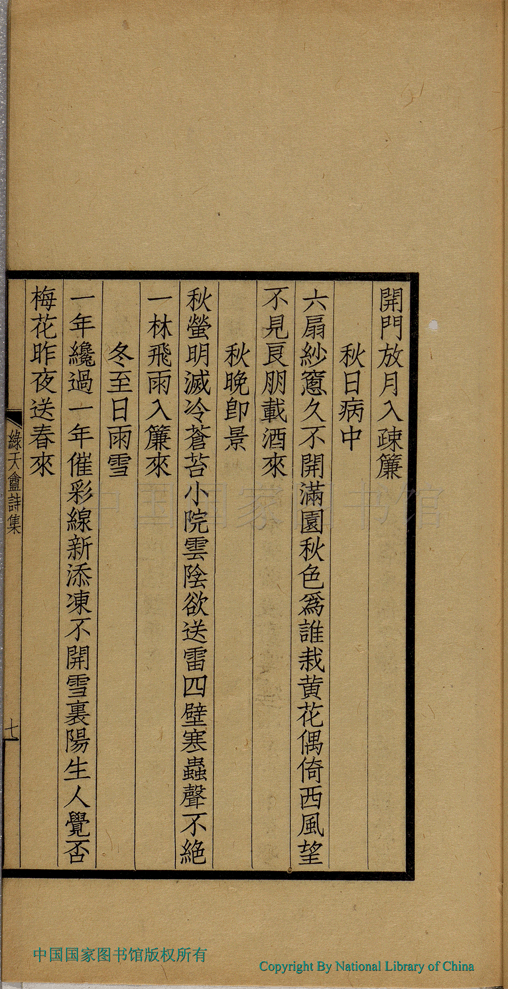 開門放月入疎簾
秋日病中
六扇紗窻久不開滿園秋色爲誰栽黄花偶倚西風望
不見良朋載酒來
秋晚卽景
秋螢明滅冷蒼苔小院雲陰欲送雷四壁寒蟲聲不絶
一林飛雨入簾來
冬至日雨雪
一年纔過一年催彩線新添凍不開雪裏陽生人覺否
梅花昨夜送春來
綠天盦詩集
七
中国国家图书馆
中国国家图书馆版权所有
Copyright By National Library of China